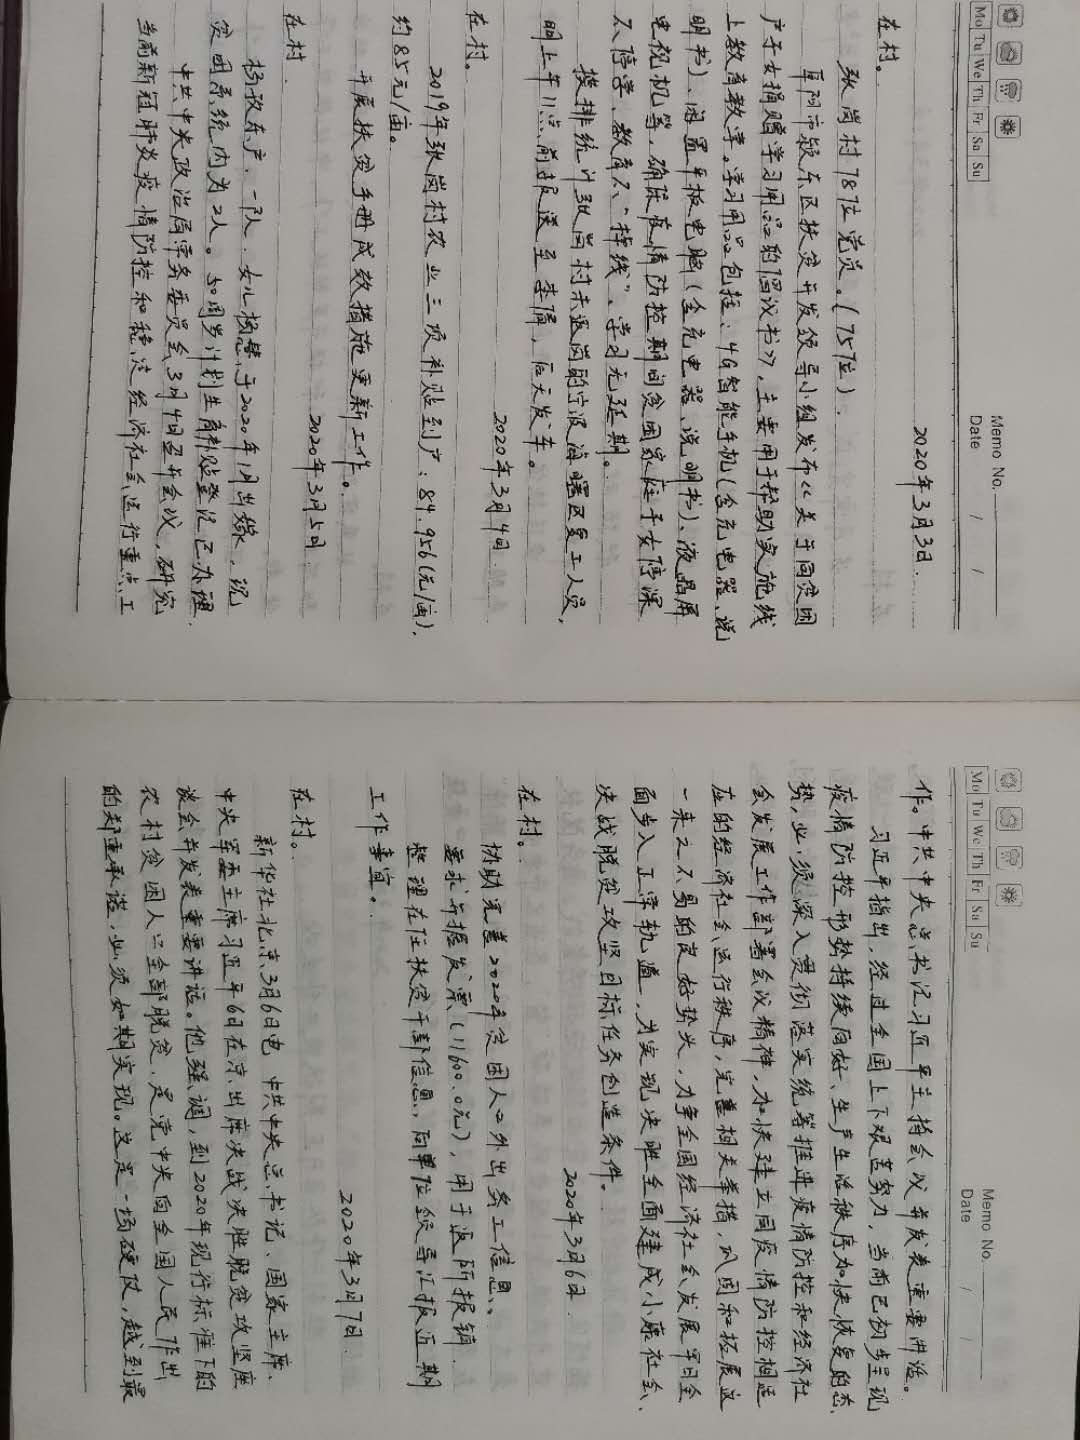 Mo Tu We Th Fr Sa Su
Memo No.
Date / /
2020年3月3日.
在村。
张岗村78位党员。(75位).
阜阳市颍东区扶贫开发领导小组发布《关于向贫困
户子女捐赠学习用品的倡议书》,主要用于帮助实施线
上教育教学。学习用品包括:4G智能手机(含充电器、说
明书)、闲置平板电脑(含充电器、说明书)、液晶屏
电视机等,确保疫情防控期间贫困家庭子女停课
不停学、教育不“掉线”、学习无延期。
摸排统计张岗村未返岗的宁波海曙区复工人员,
明上午11点前报送至李倩,后天发车。
2020年3月4日.
在村。
2019年张岗村农业三项补贴到户:84.956(元/亩).
约85元/亩。
开展扶贫手册成效措施更新工作。
2020年3月5日.
在村.
杨政东户,一队.女儿杨慧于2020年1月出嫁,现
贫困系统内为2人。50周岁计划生育补贴登记已办理.
中共中央政治局常务委员会3月4日召开会议,研究
当前新冠肺炎疫情防控和稳定经济社会运行重点工
Mo Tu We Th Fr Sa Su
Memo No.
Date / /
作。中共中央总书记习近平主持会议并发表重要讲话。
习近平指出,经过全国上下艰苦努力,当前已初步呈现
疫情防控形势持续向好、生产生活秩序加快恢复的态
势,必须深入贯彻落实统筹推进疫情防控和经济社
会发展工作部署会议精神,加快建立同疫情防控相适
应的经济社会运行秩序,完善相关举措,巩固和拓展这
一来之不易的良好势头,力争全国经济社会发展早日全
面步入正常轨道,为实现决胜全面建成小康社会、
决战脱贫攻坚目标任务创造条件。
2020年3月6日.
在村。
协助完善2020年贫困人口外出务工信息。
要求开据发票(11600.0元),用于返所报销.
整理在任扶贫干部信息,向单位领导汇报近期
工作事宜。
2020年3月7日.
在村。
新华社北京3月6日电 中共中央总书记、国家主席、
中央军委主席习近平6日在京出席决战决胜脱贫攻坚座
谈会并发表重要讲话。他强调,到2020年现行标准下的
农村贫困人口全部脱贫,是党中央向全国人民作出
的郑重承诺,必须如期实现。这是一场硬仗,越到最